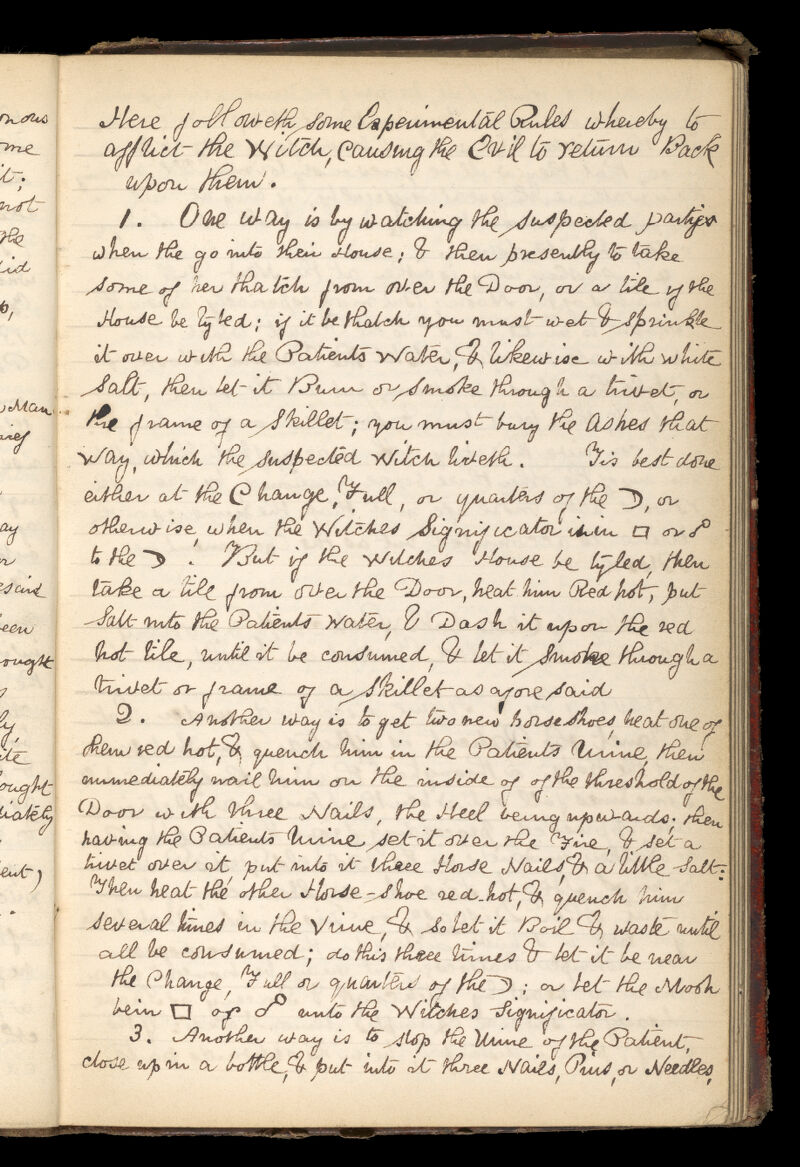 onous
me
it;
not
the
did
Man
ay
or
been
ought
s
ly,
ite
ought
diately
ent)
Here followeth some Experimental Rules whereby to
afflict the Witch, causing the Evil to return Back
upon them.
1. One way is by watching the suspected partys
when the go into their House; & then presently to take
some of her thatch from over the Door, or a tile if the
House be tyled; if it be thatch you must wet & sprinkle
it over with the Patients Water, & likewise with white
Salt, then let it Burn or smoke through a trivet, or
the frame of a Skillet; you must bury the Ashes that
way, which the suspected Witch liveth. Tis best done
either at the Change, Full, or quarters of the ☽, or
otherwise, when the Witches Significator is in □ or ☍
to the ☽. But if the Witches House be tyled, then
take a tile from over the Door, heat him Red hot, put
Salt into the Patients Water, & Dash it upon the red
hot tile, until it be consumed, & let it smoke through a
trivet or frame of a Skillet as afore said
2. Another way is to get two new horse shoes, heat one of
them red hot, & quench him in the Patients Urine, then
immediately nail him on the inside of of the threshold of the
Door with three Nails, the Heel being upwards; then
having the Patients Urine set it over the Fire, & set a
trivet over it, put into it three Horse Nails, & a little Salt:
Then heat the other Horse-shoe red hot, & quench him
several times in the Urine, & so let it Boil & waste until
all be consumed; do this three times & let it be near
the Change, Full or quarters of the ☽; or let the Moon
be in □ or ☍ unto the Witches Significator.
3. Another way is to stop the Urine of the Patient,
close up in a bottle, & put into it three Nails, Pins, or Needles,